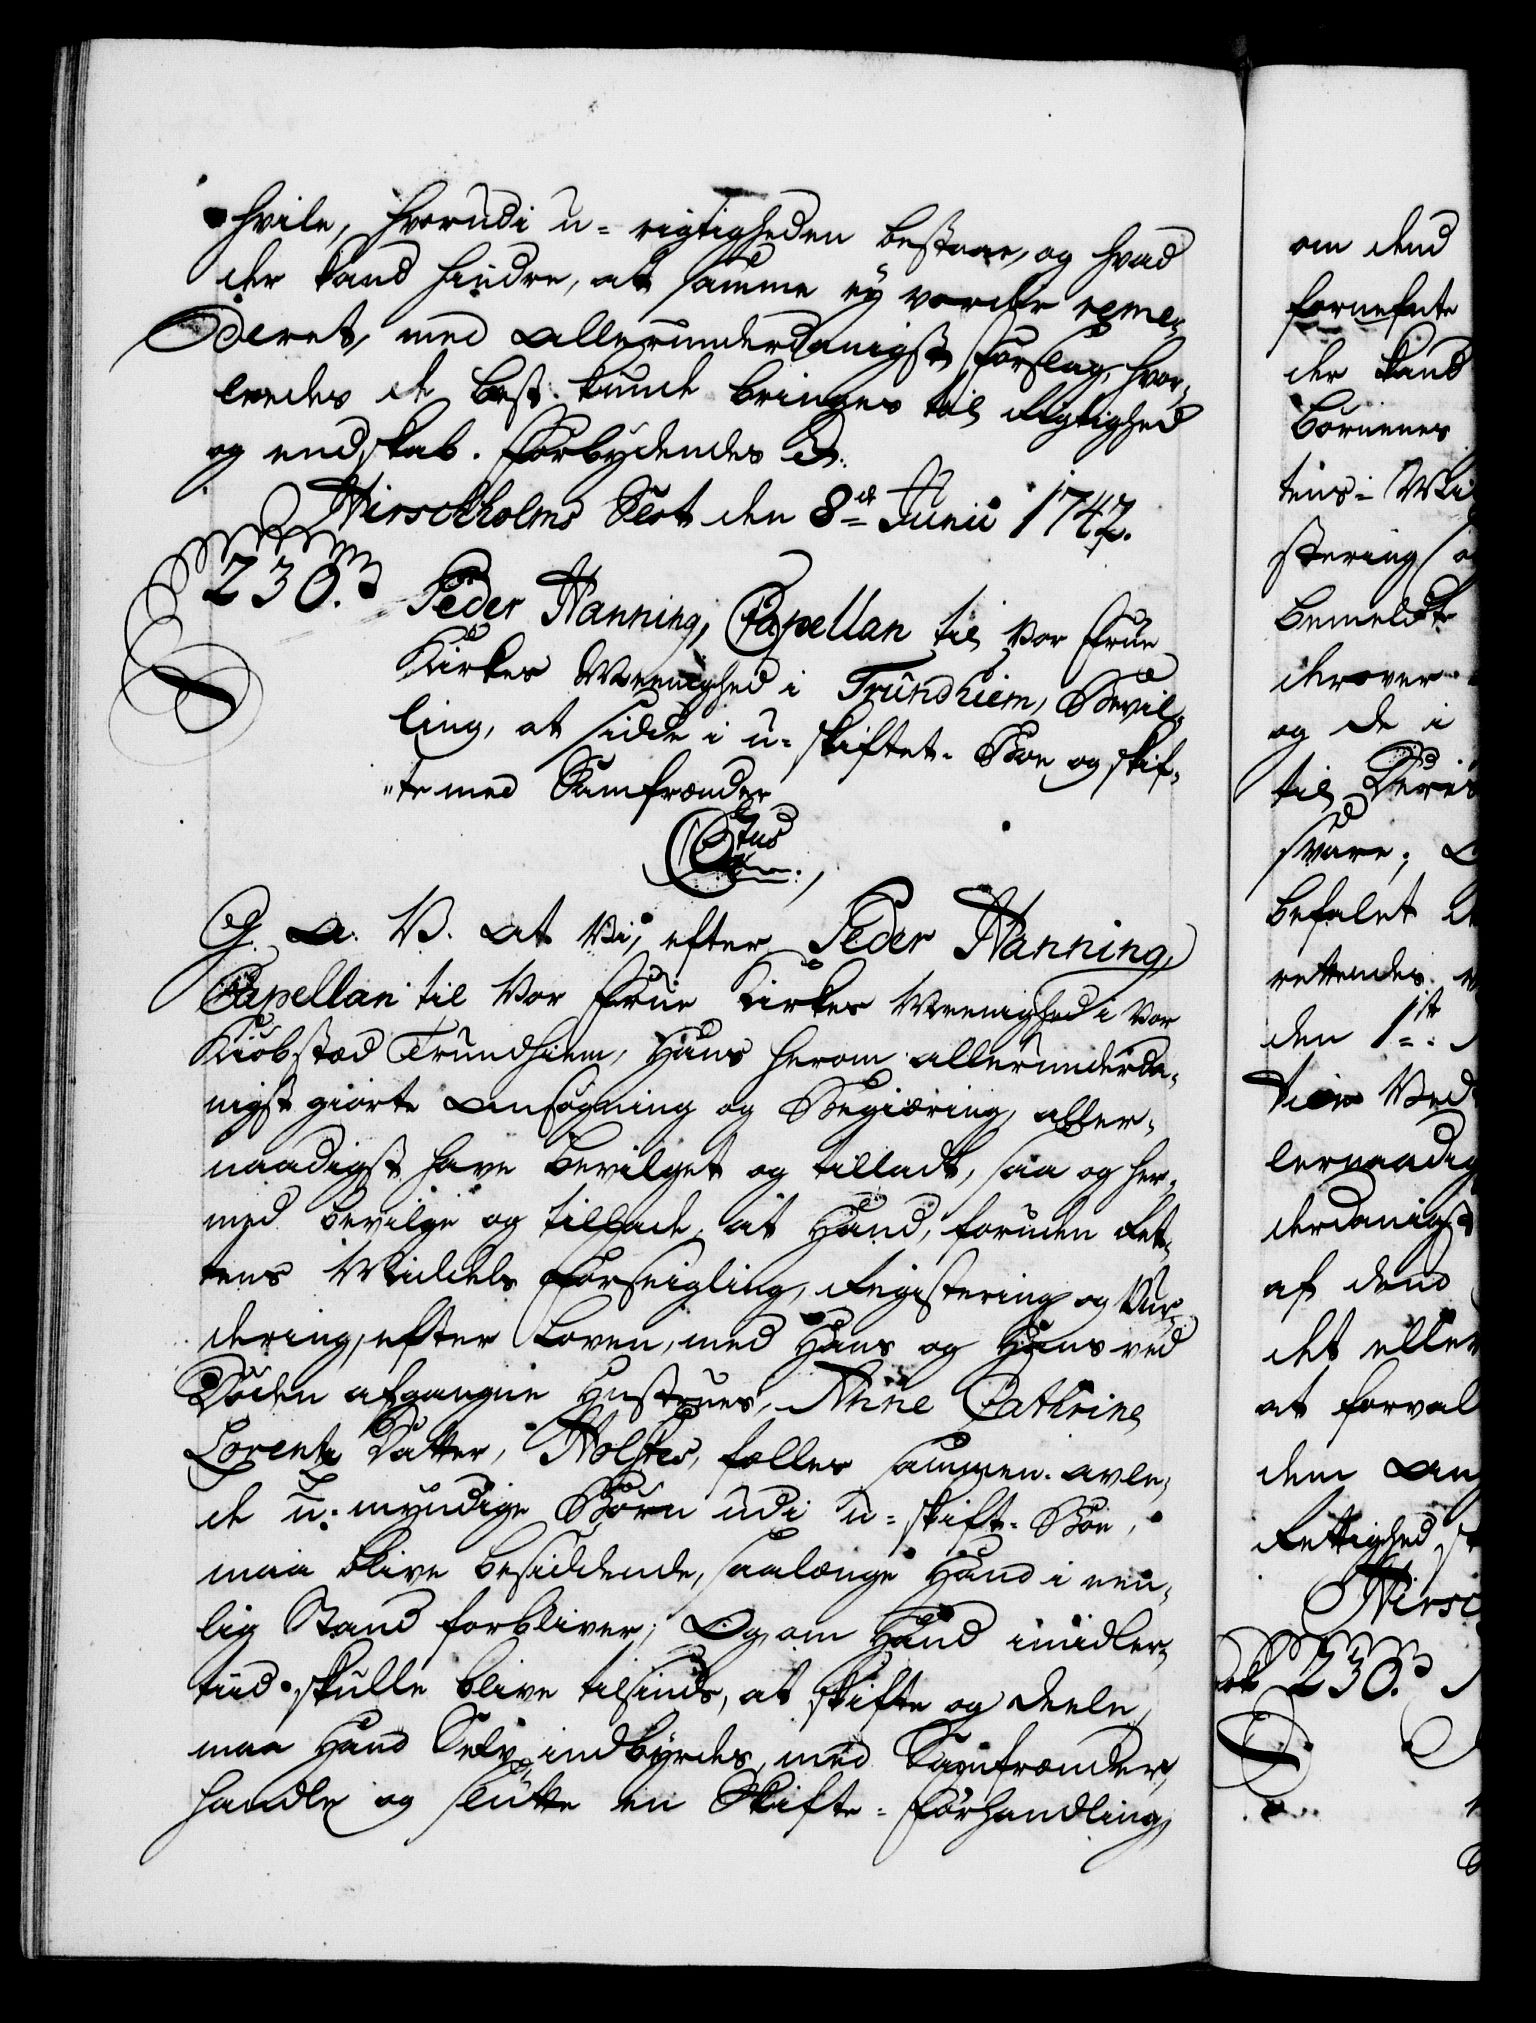 hvile, hvorudi u-rigtigheden bestaar, og hvad
der kand hindre, at samme ej vorder reme-
deret, med allerunderdanigst Forslag, hvor-
ledes de best kunde bringes til Rigtighed
og endskab. Forbydendes &.
Hirschholms Slot den 8de Junii 1742.
230.
Peder Hanning, Capellan til Vor Frue
Kirkes Meenighed i Trundhiem, Bevil-
ling, at sidde i u-skiftet-Boe og skif-
te med Samfrænder
C6tus
G. a. V. at Vi, efter Peder Hanning,
Capellan til Vor Frue Kirkes Meenighed i Vor
Kiøbstæd Trundhiem, Hans herom allerunderda-
nigst giorte Ansøgning og Begiæring, aller-
naadigst have bevilget og tilladt, saa og her-
med bevilge og tillade, at Hand, foruden Ret-
tens Middels Forseigling, Registering og Vur-
dering, efter Loven, med Hans og Hans ved
Døden afgangne Hustrues, Anne Cathrine
Lorentz Datter, Holsters, fælles sammen-avle-
de u-myndige Børn udi u-skift-Boe,
maa blive besiddende, saalænge Hand i een-
lig Stand forbliver; Og, om Hand imidler-
tiid skulle blive tilsinds, at skifte og deele,
maa Hand Selv indbyrdes, med Samfrænder,
handle og slutte en Skifte-Forhandling,
om dend
fornefnte
der kand
Børnenes
tens-Mi
stering o
bemeldte
derover
og de i
til Deris
svare;
befalet
rettendes
den 1ste
Ved
lernaadig
derdanigst
af dend
det eller
at forval
dem an
Rettighed
Hirsc
230.